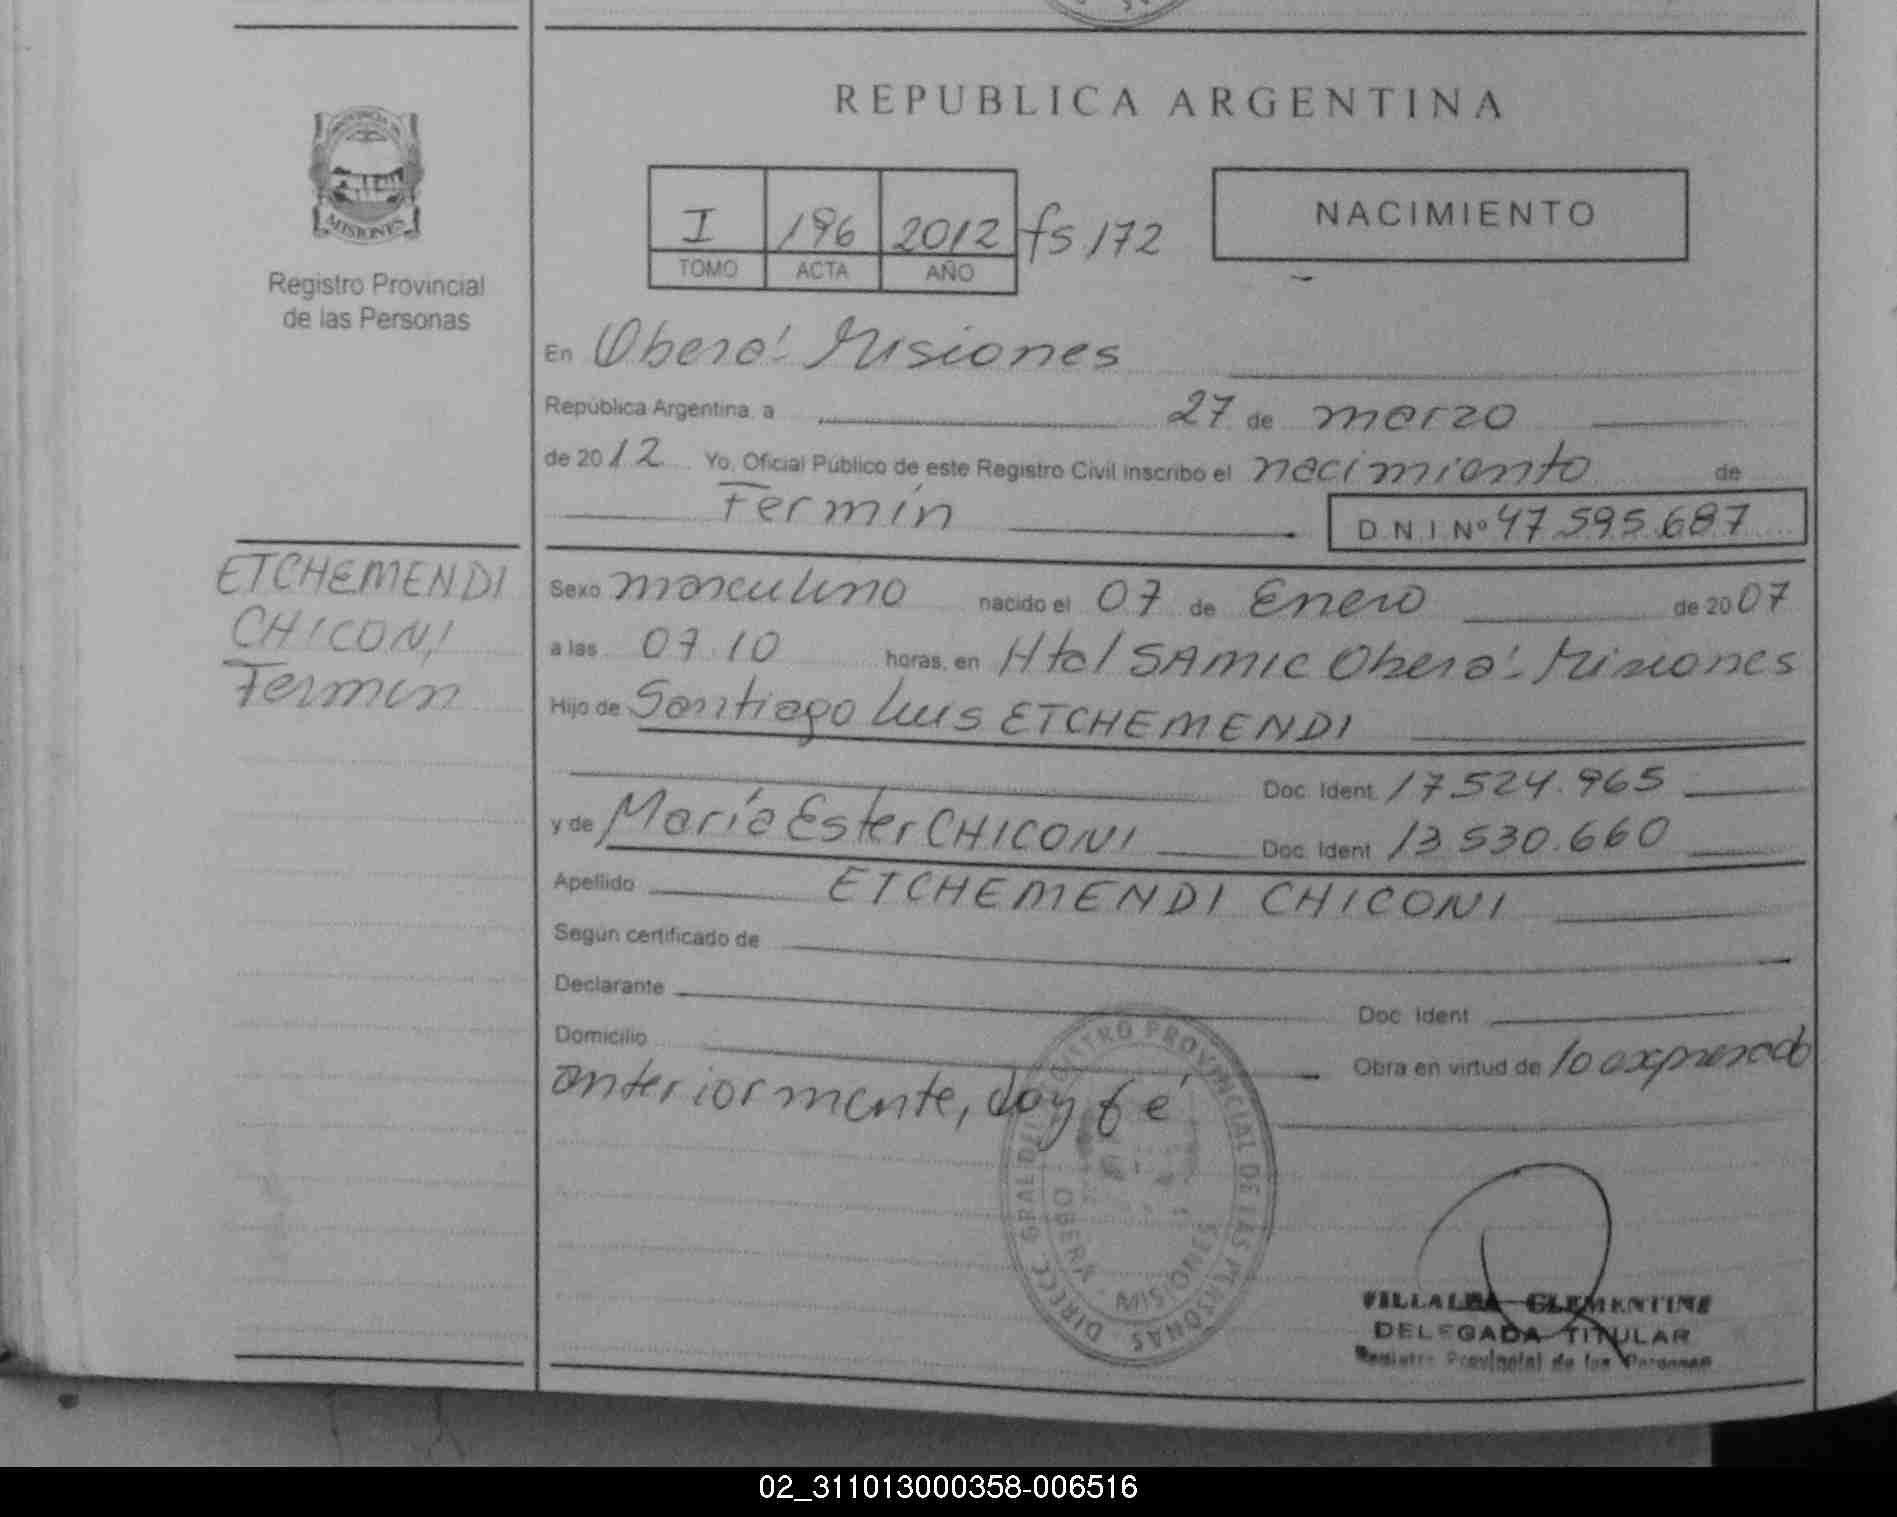 REPUBLICA ARGENTINA
MISIONES
Registro Provincial
de las Personas
I 196 2012 fs 172
TOMO ACTA AÑO
NACIMIENTO
En Oberá - Misiones
República Argentina, a 27 de marzo
de 2012 Yo, Oficial Público de este Registro Civil inscribo el nacimiento de
Fermín
D.N.I. Nº 47.595.687
ETCHEMENDI
CHICONI,
Fermín
Sexo masculino nacido el 07 de Enero de 2007
a las 07.10 horas, en Htal SAMIC Oberá - Misiones
Hijo de Santiago Luis ETCHEMENDI
Doc. Ident. 17.524.965
y de María Ester CHICONI Doc. Ident. 13.530.660
Apellido ETCHEMENDI CHICONI
Según certificado de
Declarante
Doc. Ident.
Domicilio
Obra en virtud de lo expresado
anteriormente, doy fé
DIRECC. GRAL DEL REGISTRO PROVINCIAL DE LAS PERSONAS
OBERA - MISIONES
VILLALBA CLEMENTINE
DELEGADA TITULAR
Registro Provincial de las Personas
02_311013000358-006516